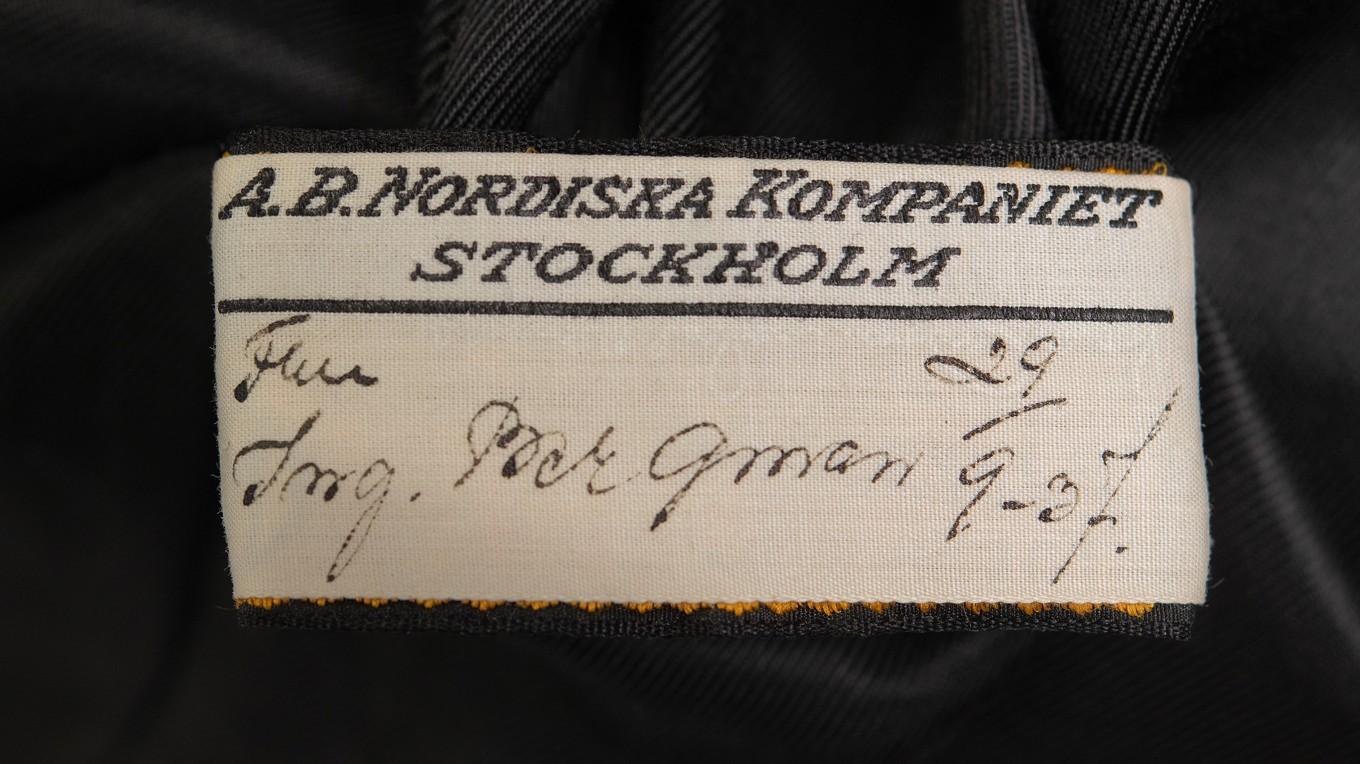 A.B. NORDISKA KOMPANIET
STOCKHOLM
29
Ing. Bergman 9-37.